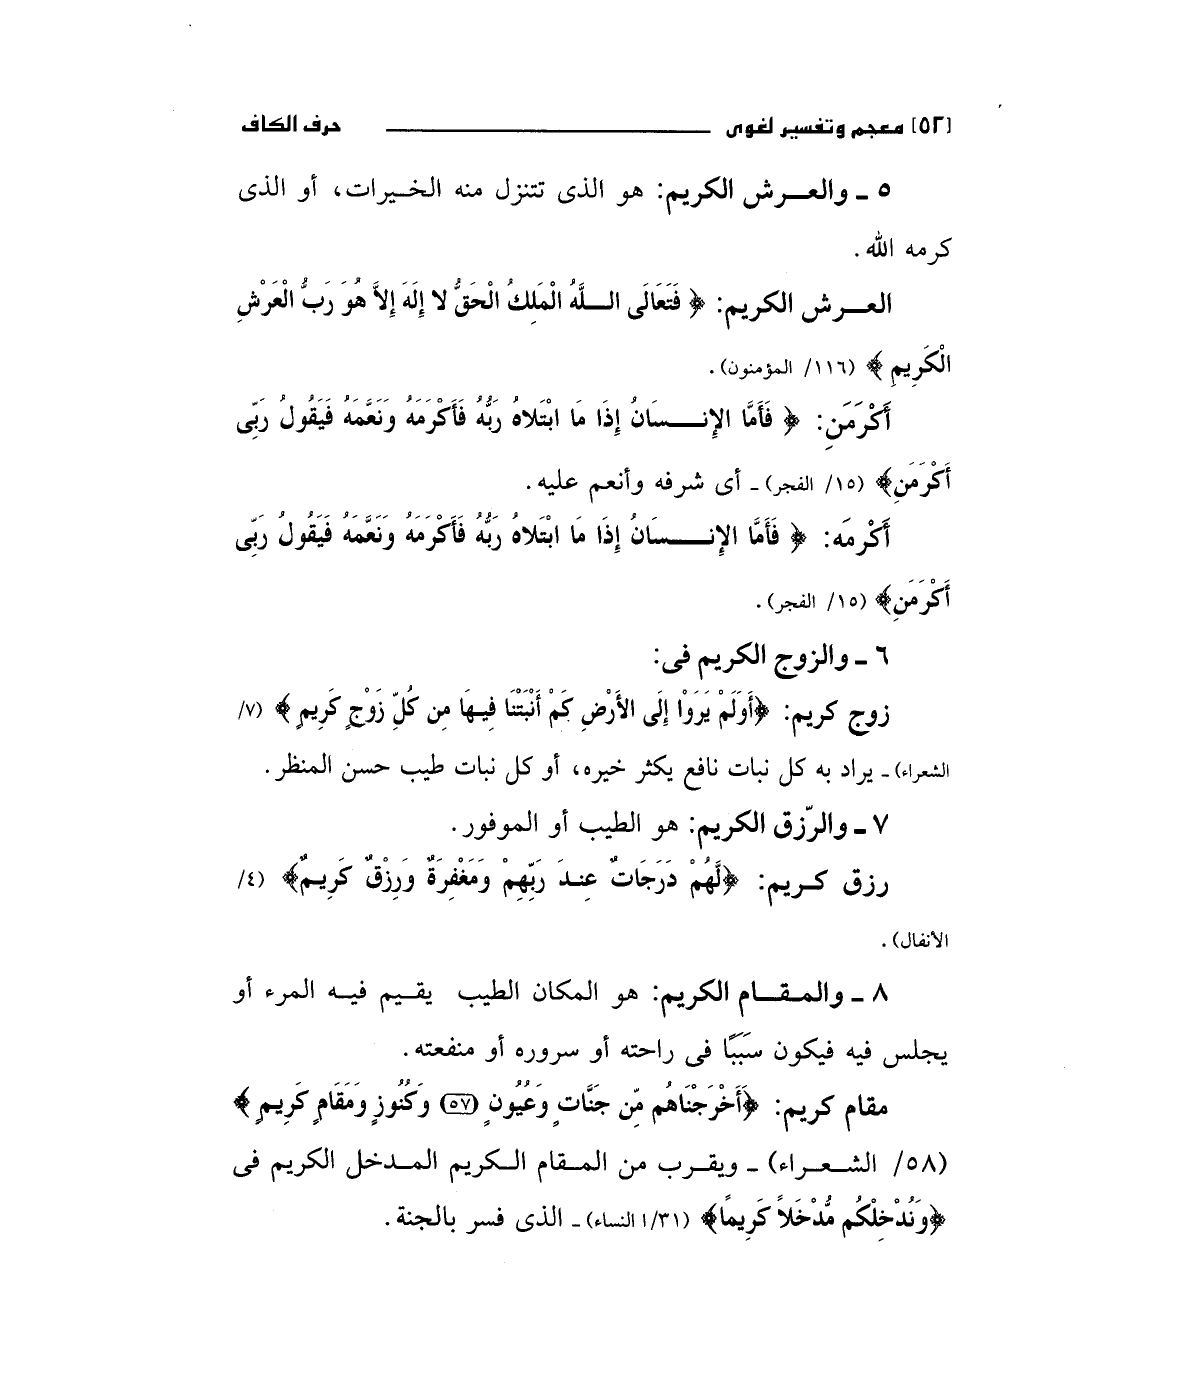 [٥٢] معجم وتفسير لغوى حرف الكاف
٥ ـ والعرش الكريم: هو الذى تتنزل منه الخيرات، أو الذى
كرمه الله.
العرش الكريم: ﴿ فَتَعَالَى اللَّهُ الْمَلِكُ الْحَقُّ لا إِلَهَ إِلاَّ هُوَ رَبُّ الْعَرْشِ
الْكَرِيمِ ﴾ (١١٦/ المؤمنون).
أَكْرَمَنِ: ﴿ فَأَمَّا الإِنسَانُ إِذَا مَا ابْتَلاهُ رَبُّهُ فَأَكْرَمَهُ وَنَعَّمَهُ فَيَقُولُ رَبِّى
أَكْرَمَنِ﴾ (١٥/ الفجر) ـ أى شرفه وأنعم عليه.
أَكْرمَه: ﴿ فَأَمَّا الإِنسَانُ إِذَا مَا ابْتَلاهُ رَبُّهُ فَأَكْرَمَهُ وَنَعَّمَهُ فَيَقُولُ رَبِّى
أَكْرَمَنِ﴾ (١٥/ الفجر).
٦ ـ والزوج الكريم فى:
زوج كريم: ﴿أَوَلَمْ يَرَوْا إِلَى الأَرْضِ كَمْ أَنْبَتْنَا فِيهَا مِن كُلِّ زَوْجٍ كَرِيمٍ ﴾ (٧/
الشعراء) ـ يراد به كل نبات نافع يكثر خيره، أو كل نبات طيب حسن المنظر.
٧ ـ والرّزق الكريم: هو الطيب أو الموفور.
رزق كريم: ﴿لَّهُمْ دَرَجَاتٌ عِندَ رَبِّهِمْ وَمَغْفِرَةٌ وَرِزْقٌ كَرِيمٌ﴾ (٤/
الأنفال).
٨ ـ والمقام الكريم: هو المكان الطيب يقيم فيه المرء أو
يجلس فيه فيكون سَبَبًا فى راحته أو سروره أو منفعته.
مقام كريم: ﴿أَخْرَجْنَاهُم مِّن جَنَّاتٍ وَعُيُونٍ (٥٧) وَكُنُوزٍ وَمَقَامٍ كَرِيمٍ ﴾
(٥٨/ الشعراء) ـ ويقرب من المقام الكريم المدخل الكريم فى
﴿وَنُدْخِلْكُم مُّدْخَلاً كَرِيمًا﴾ (١/٣١ النساء) ـ الذى فسر بالجنة.